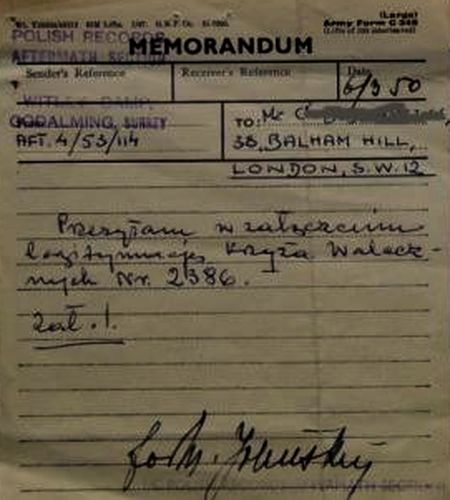 (Large)
Army Form C 348
POLISH RECORDS
AFTERMATH SECTION
MEMORANDUM
Sender's Reference
Receiver's Reference
Date
6/3 50
WITLEY CAMP,
GODALMING, SURREY
AFT. 4/53/114
TO: Mr C
38, BALHAM HILL,
LONDON, S.W.12
Przesyłam w załączeniu
legitymację Krzyża Walecz-
nych Nr. 2386.
Zał. 1.